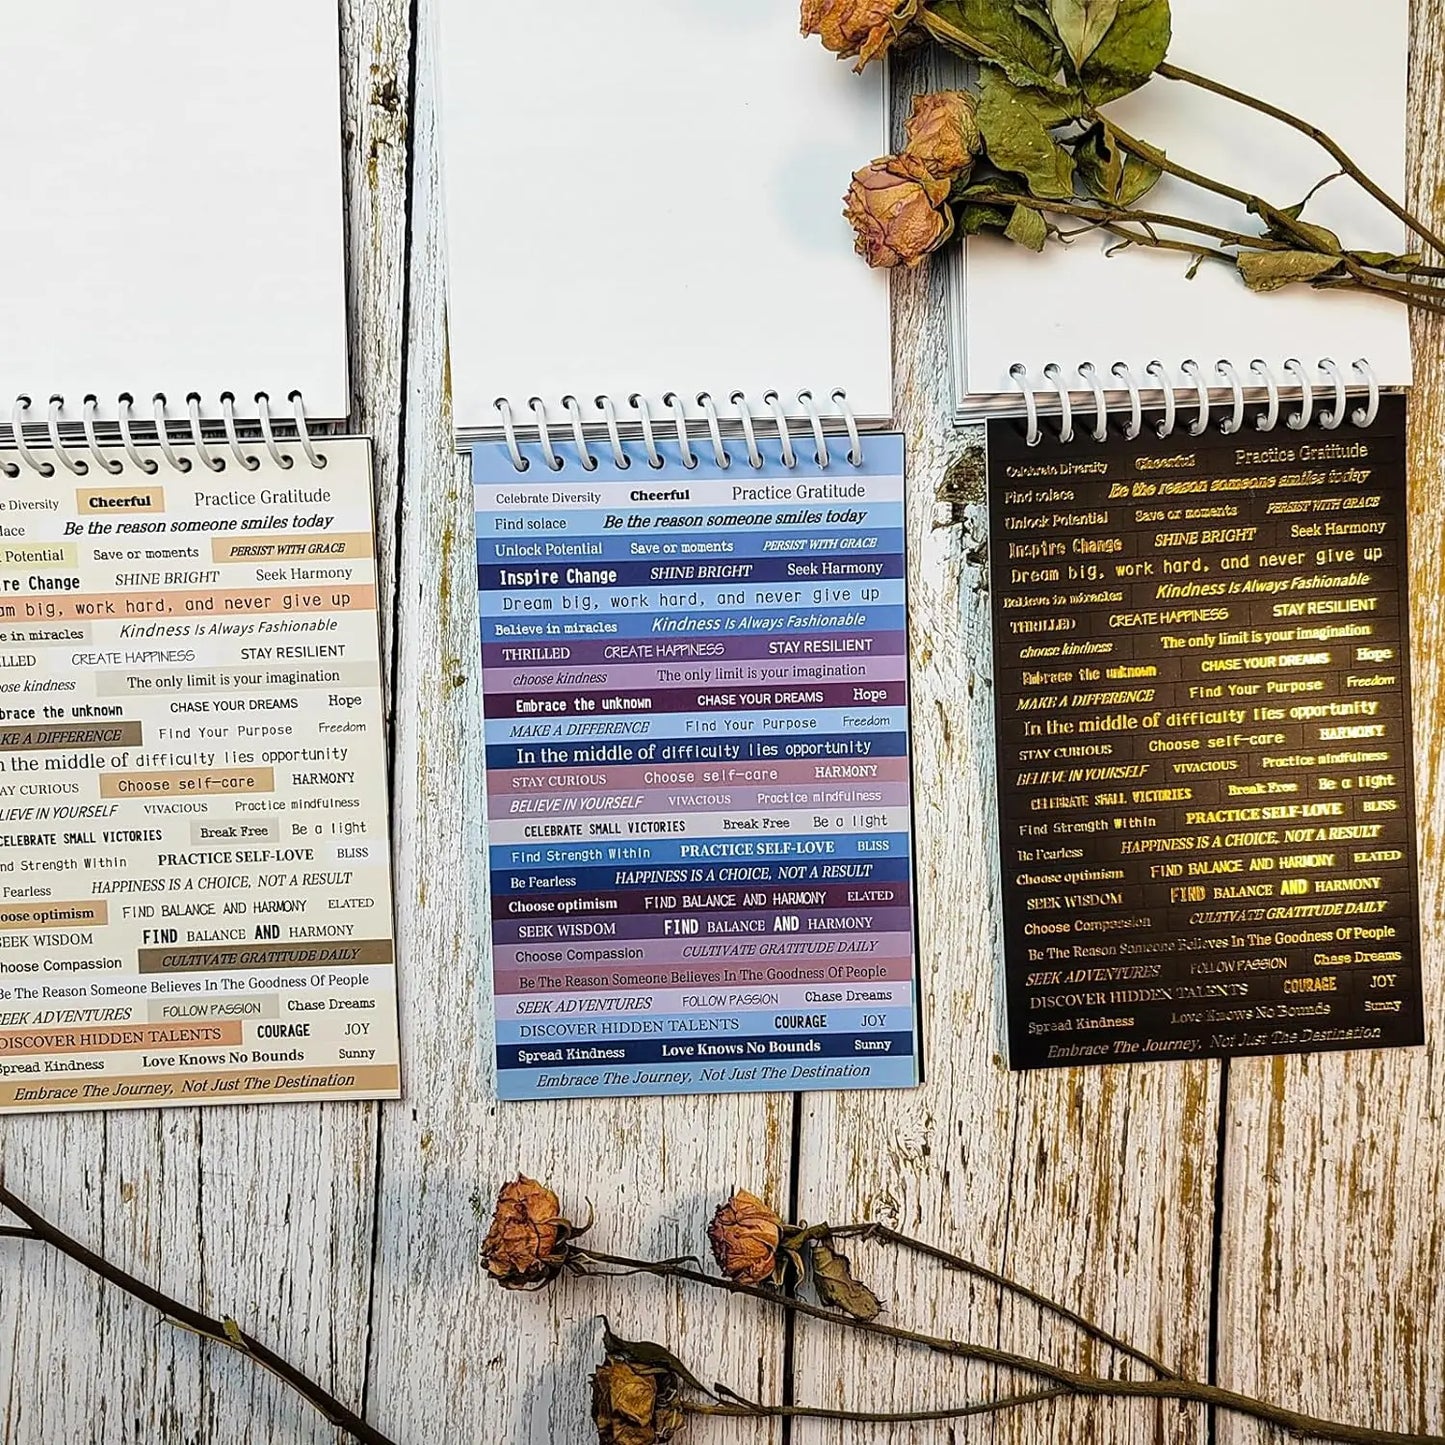 e Diversity Cheerful Practice Gratitude
lace Be the reason someone smiles today
Potential Save or moments PERSIST WITH GRACE
re Change SHINE BRIGHT Seek Harmony
am big, work hard, and never give up
e in miracles Kindness Is Always Fashionable
LLED CREATE HAPPINESS STAY RESILIENT
ose kindness The only limit is your imagination
brace the unknown CHASE YOUR DREAMS Hope
KE A DIFFERENCE Find Your Purpose Freedom
n the middle of difficulty lies opportunity
AY CURIOUS Choose self-care HARMONY
LIEVE IN YOURSELF VIVACIOUS Practice mindfulness
CELEBRATE SMALL VICTORIES Break Free Be a light
nd Strength Within PRACTICE SELF-LOVE BLISS
Fearless HAPPINESS IS A CHOICE, NOT A RESULT
oose optimism FIND BALANCE AND HARMONY ELATED
SEEK WISDOM FIND BALANCE AND HARMONY
hoose Compassion CULTIVATE GRATITUDE DAILY
Be The Reason Someone Believes In The Goodness Of People
SEEK ADVENTURES FOLLOW PASSION Chase Dreams
DISCOVER HIDDEN TALENTS COURAGE JOY
Spread Kindness Love Knows No Bounds Sunny
Embrace The Journey, Not Just The Destination
Celebrate Diversity Cheerful Practice Gratitude
Find solace Be the reason someone smiles today
Unlock Potential Save or moments PERSIST WITH GRACE
Inspire Change SHINE BRIGHT Seek Harmony
Dream big, work hard, and never give up
Believe in miracles Kindness Is Always Fashionable
THRILLED CREATE HAPPINESS STAY RESILIENT
choose kindness The only limit is your imagination
Embrace the unknown CHASE YOUR DREAMS Hope
MAKE A DIFFERENCE Find Your Purpose Freedom
In the middle of difficulty lies opportunity
STAY CURIOUS Choose self-care HARMONY
BELIEVE IN YOURSELF VIVACIOUS Practice mindfulness
CELEBRATE SMALL VICTORIES Break Free Be a light
Find Strength Within PRACTICE SELF-LOVE BLISS
Be Fearless HAPPINESS IS A CHOICE, NOT A RESULT
Choose optimism FIND BALANCE AND HARMONY ELATED
SEEK WISDOM FIND BALANCE AND HARMONY
Choose Compassion CULTIVATE GRATITUDE DAILY
Be The Reason Someone Believes In The Goodness Of People
SEEK ADVENTURES FOLLOW PASSION Chase Dreams
DISCOVER HIDDEN TALENTS COURAGE JOY
Spread Kindness Love Knows No Bounds Sunny
Embrace The Journey, Not Just The Destination
Celebrate Diversity Cheerful Practice Gratitude
Find solace Be the reason someone smiles today
Unlock Potential Save or moments PERSIST WITH GRACE
Inspire Change SHINE BRIGHT Seek Harmony
Dream big, work hard, and never give up
Believe in miracles Kindness Is Always Fashionable
THRILLED CREATE HAPPINESS STAY RESILIENT
choose kindness The only limit is your imagination
Embrace the unknown CHASE YOUR DREAMS Hope
MAKE A DIFFERENCE Find Your Purpose Freedom
In the middle of difficulty lies opportunity
STAY CURIOUS Choose self-care HARMONY
BELIEVE IN YOURSELF VIVACIOUS Practice mindfulness
CELEBRATE SMALL VICTORIES Break Free Be a light
Find Strength Within PRACTICE SELF-LOVE BLISS
Be Fearless HAPPINESS IS A CHOICE, NOT A RESULT
Choose optimism FIND BALANCE AND HARMONY ELATED
SEEK WISDOM FIND BALANCE AND HARMONY
Choose Compassion CULTIVATE GRATITUDE DAILY
Be The Reason Someone Believes In The Goodness Of People
SEEK ADVENTURES FOLLOW PASSION Chase Dreams
DISCOVER HIDDEN TALENTS COURAGE JOY
Spread Kindness Love Knows No Bounds Sunny
Embrace The Journey, Not Just The Destination